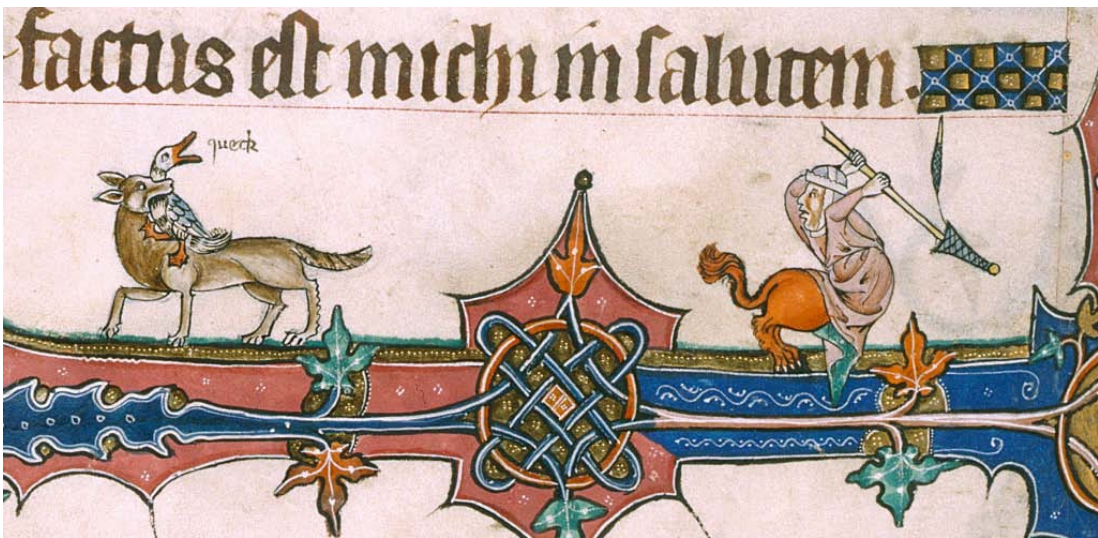 factus est michi in salutem.
queck